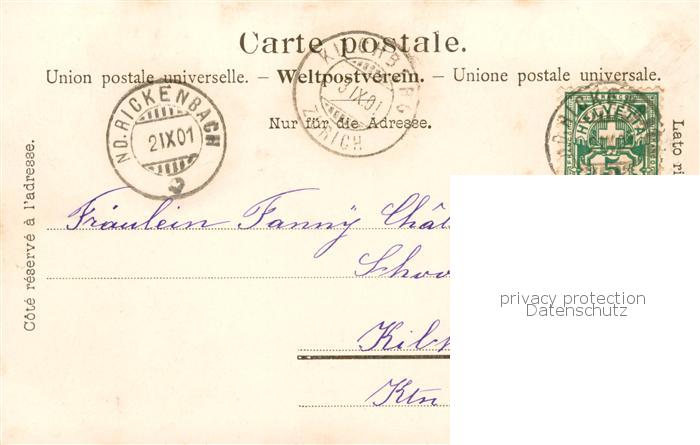 Carte postale.
Union postale universelle. – Weltpostverein. – Unione postale universale.
Nur für die Adresse.
ND. RICKENBACH
2 IX 01
KILCHBERG
3 IX 01
ZÜRICH
HELVETIA
5
Côté réservé à l'adresse.
Lato ri
Fräulein Fanny
Schoo
Kilch
Ktn
privacy protection
Datenschutz